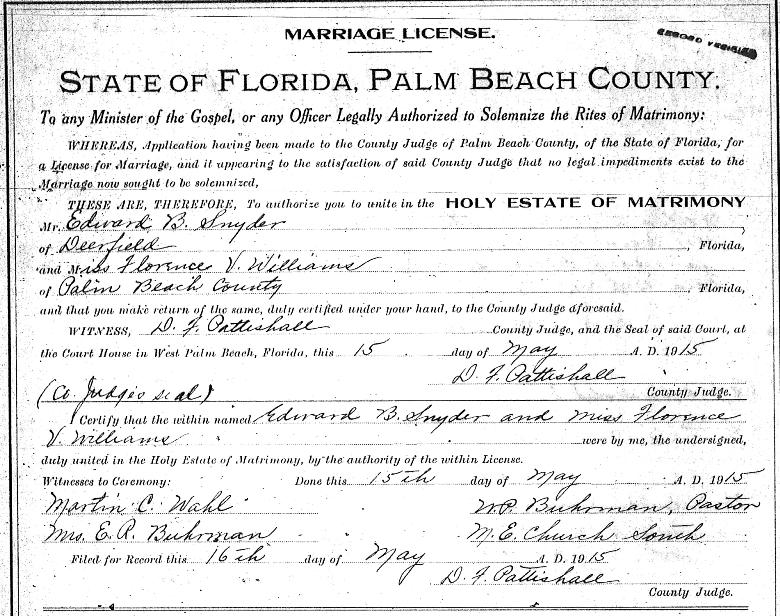 MARRIAGE LICENSE.
STATE OF FLORIDA, PALM BEACH COUNTY.
To any Minister of the Gospel, or any Officer Legally Authorized to Solemnize the Rites of Matrimony:
WHEREAS, Application having been made to the County Judge of Palm Beach County, of the State of Florida, for
a License for Marriage, and it appearing to the satisfaction of said County Judge that no legal impediments exist to the
Marriage now sought to be solemnized,
THESE ARE, THEREFORE, To authorize you to unite in the HOLY ESTATE OF MATRIMONY
Mr. Edward B. Snyder
of Deerfield, Florida,
and Miss Florence V. Williams
of Palm Beach County, Florida,
and that you make return of the same, duly certified under your hand, to the County Judge aforesaid.
WITNESS, D. F. Pattishall County Judge, and the Seal of said Court, at
the Court House in West Palm Beach, Florida, this 15 day of May A. D. 1915
D. F. Pattishall
(Co. Judge's seal) County Judge.
I Certify that the within named Edward B. Snyder and Miss Florence
V. Williams were by me, the undersigned,
duly united in the Holy Estate of Matrimony, by the authority of the within License.
Witnesses to Ceremony: Done this 15th day of May A. D. 1915
Martin C. Wahl W. P. Buhrman, Pastor
Mrs. E. R. Buhrman M. E. Church South
Filed for Record this 16th day of May A. D. 1915
D. F. Pattishall
County Judge.